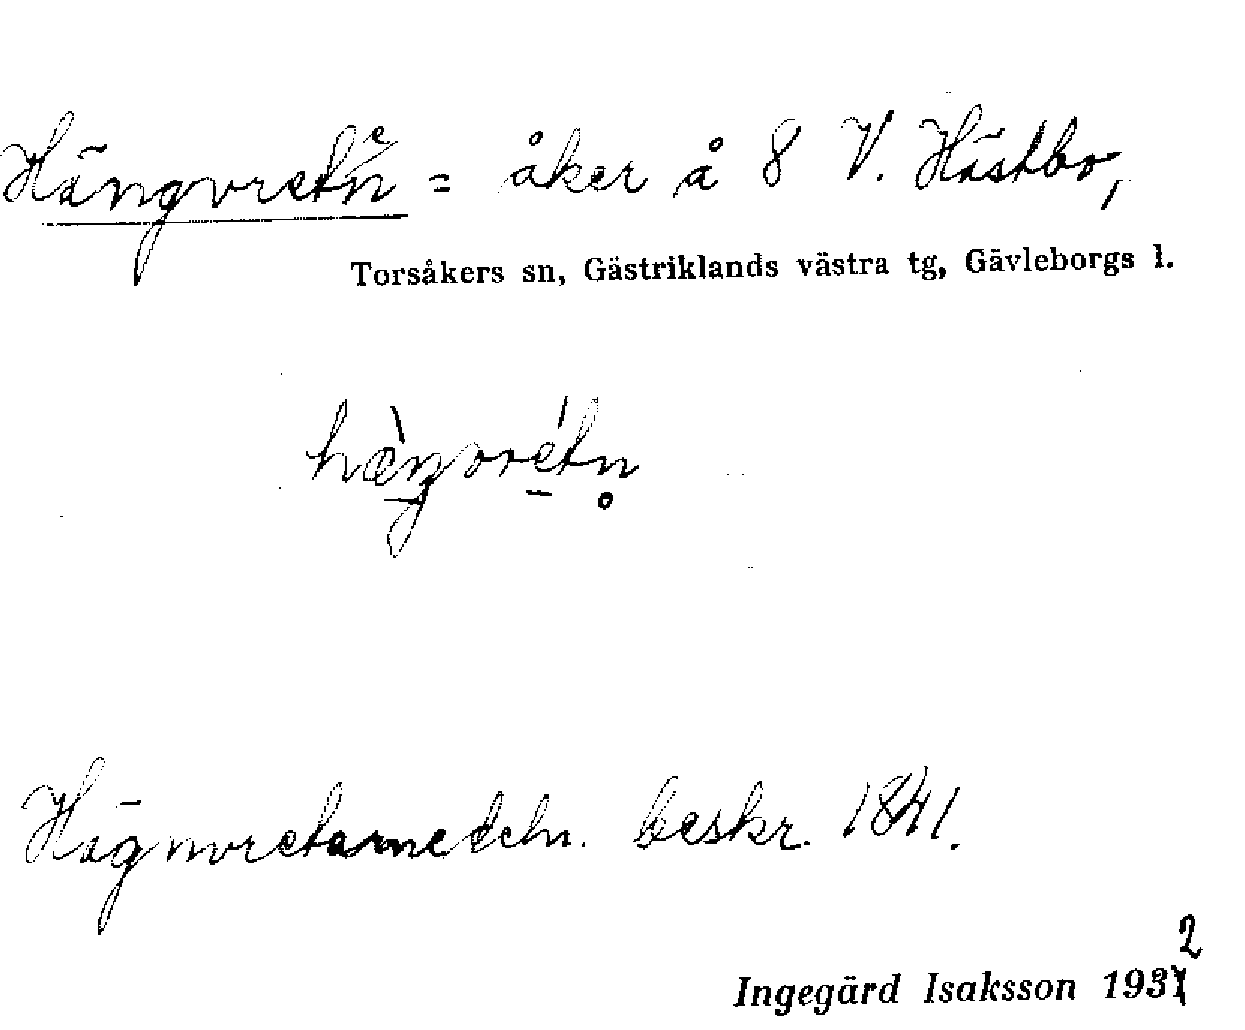 Hängvreten = åker å 8 V. Hästbo,
Torsåkers sn, Gästriklands västra tg, Gävleborgs l.
hæ̀ŋvrétn̥
Hägnvretarne beskr. 1841.
Ingegärd Isaksson 1932